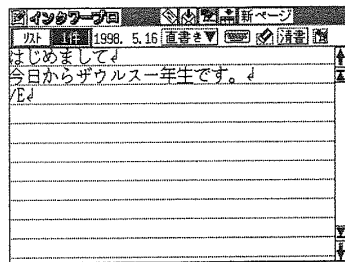 インクワープロ 新ページ
リスト 1件 1998. 5.16 直書き▼ 清書
はじめまして↲
今日からザウルス一年生です。↲
/E↲